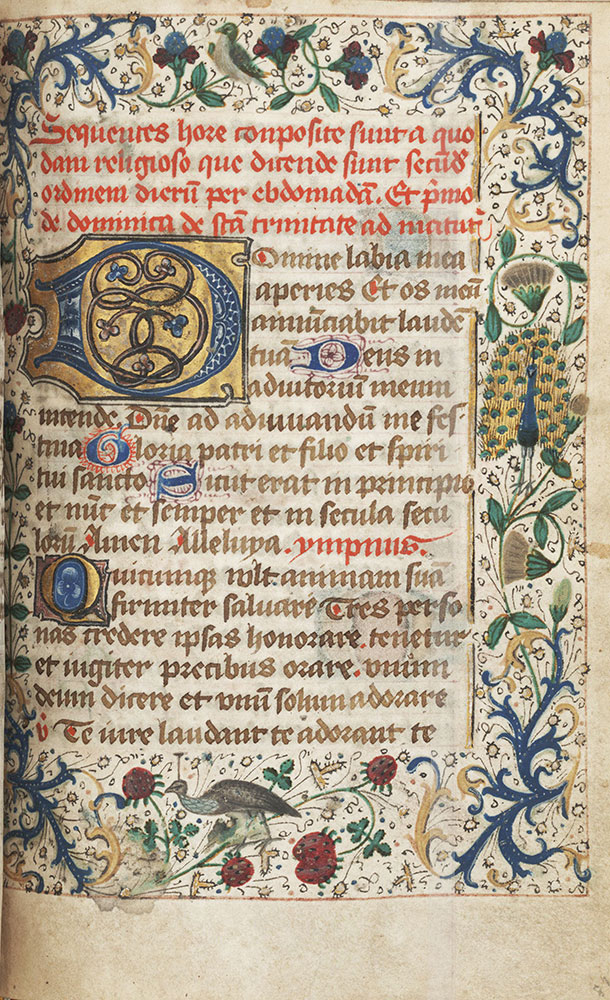 Sequentes hore conposite sunt a quo
dam religioso que dicende sunt secūdū
ordinem dierū per ebdomadā. Et p̄mo
de dominica de sc̄ā trinitate ad mātut̄
Domine labia mea
aperies Et os meū
annūciabit laudē
tuā Deus in
adiutorium meum
intende Dn̄e ad adiuuandū me fes
tina Gloria patri et filio et spiri
tui sancto Sicut erat in principio
et nūc et semper et in secula secu
lorū Amen Alleluya. ympnus.
Quicumq̄ wlt animam suā
firmiter saluare Tres perso
nas credere ipsas honorare. tenetur
et iugiter precibus orare. vnum
deum dicere et vnū solum adorare
v̄ Te iure laudant te adorant te